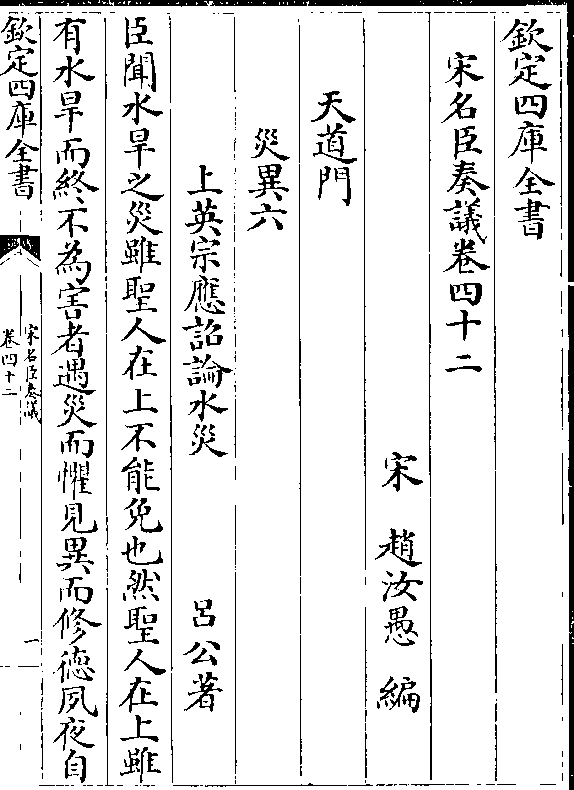 欽定四庫全書
宋名臣奏議卷四十二
宋 趙汝愚 編
天道門
災異六
上英宗應詔論水災 呂公著
臣聞水旱之災雖聖人在上不能免也然聖人在上雖
有水旱而終不為害者遇災而懼見異而修德夙夜自
欽定四庫全書
宋名臣奏議
卷四十二
一